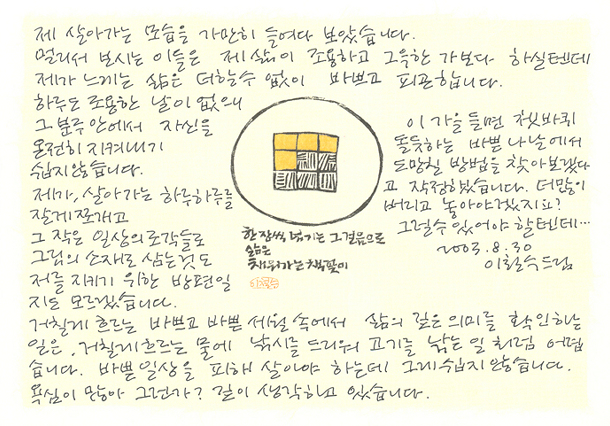 제 살아가는 모습을 가만히 들여다 보았습니다.
멀리서 보시는 이들은 제 삶이 조용하고 그윽한가보다 하실텐데
제가 느끼는 삶은 더할수 없이 바쁘고 피곤합니다.
하루도 조용한 날이 없으니
그 분주 안에서 자신을
온전히 지켜내기
쉽지 않습니다.
제가, 살아가는 하루하루를
잘게 쪼개고
그 작은 일상의 조각들로
그림의 소재로 삼는 것도
저를 지키기 위한 방편일
지도 모르겠습니다.
한 장씩 넘기는 그 걸음으로
삶은
채워가는 책꽂이
이 가을 들면 쳇바퀴
돌듯하는 바쁜 나날에서
도망칠 방법을 찾아보겠다
고 작정했습니다. 더많이
버리고 놓아야겠지요?
그럴수 있어야 할텐데…
2003.8.30
이철수 드림
거칠게 흐르는 바쁘고 바쁜 세월 속에서 삶의 깊은 의미를 확인하는
일은, 거칠게 흐르는 물에 낚시를 드리워 고기를 낚는 일처럼 어렵
습니다. 바쁜 일상을 피해 살아야 하는데 그게 쉽지 않습니다.
욕심이 많아 그런가? 깊이 생각하고 있습니다.